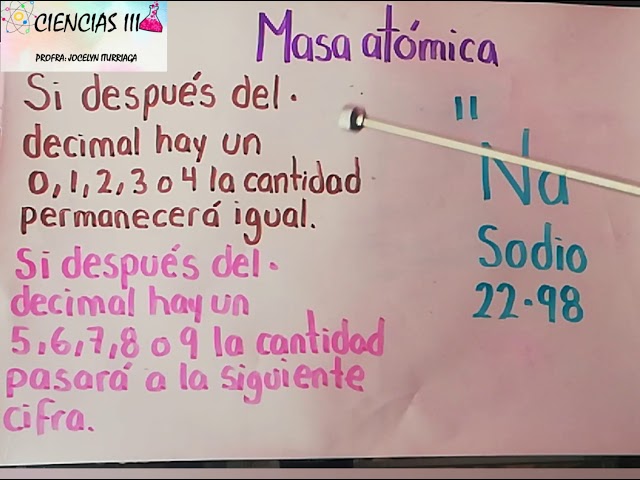 CIENCIAS III
PROFRA: JOCELYN ITURRIAGA
Masa atómica
Si después del .
decimal hay un
0, 1, 2, 3 o 4 la cantidad
permanecerá igual.
Si después del .
decimal hay un
5, 6, 7, 8 o 9 la cantidad
pasará a la siguiente
cifra.
11
Na
Sodio
22.98